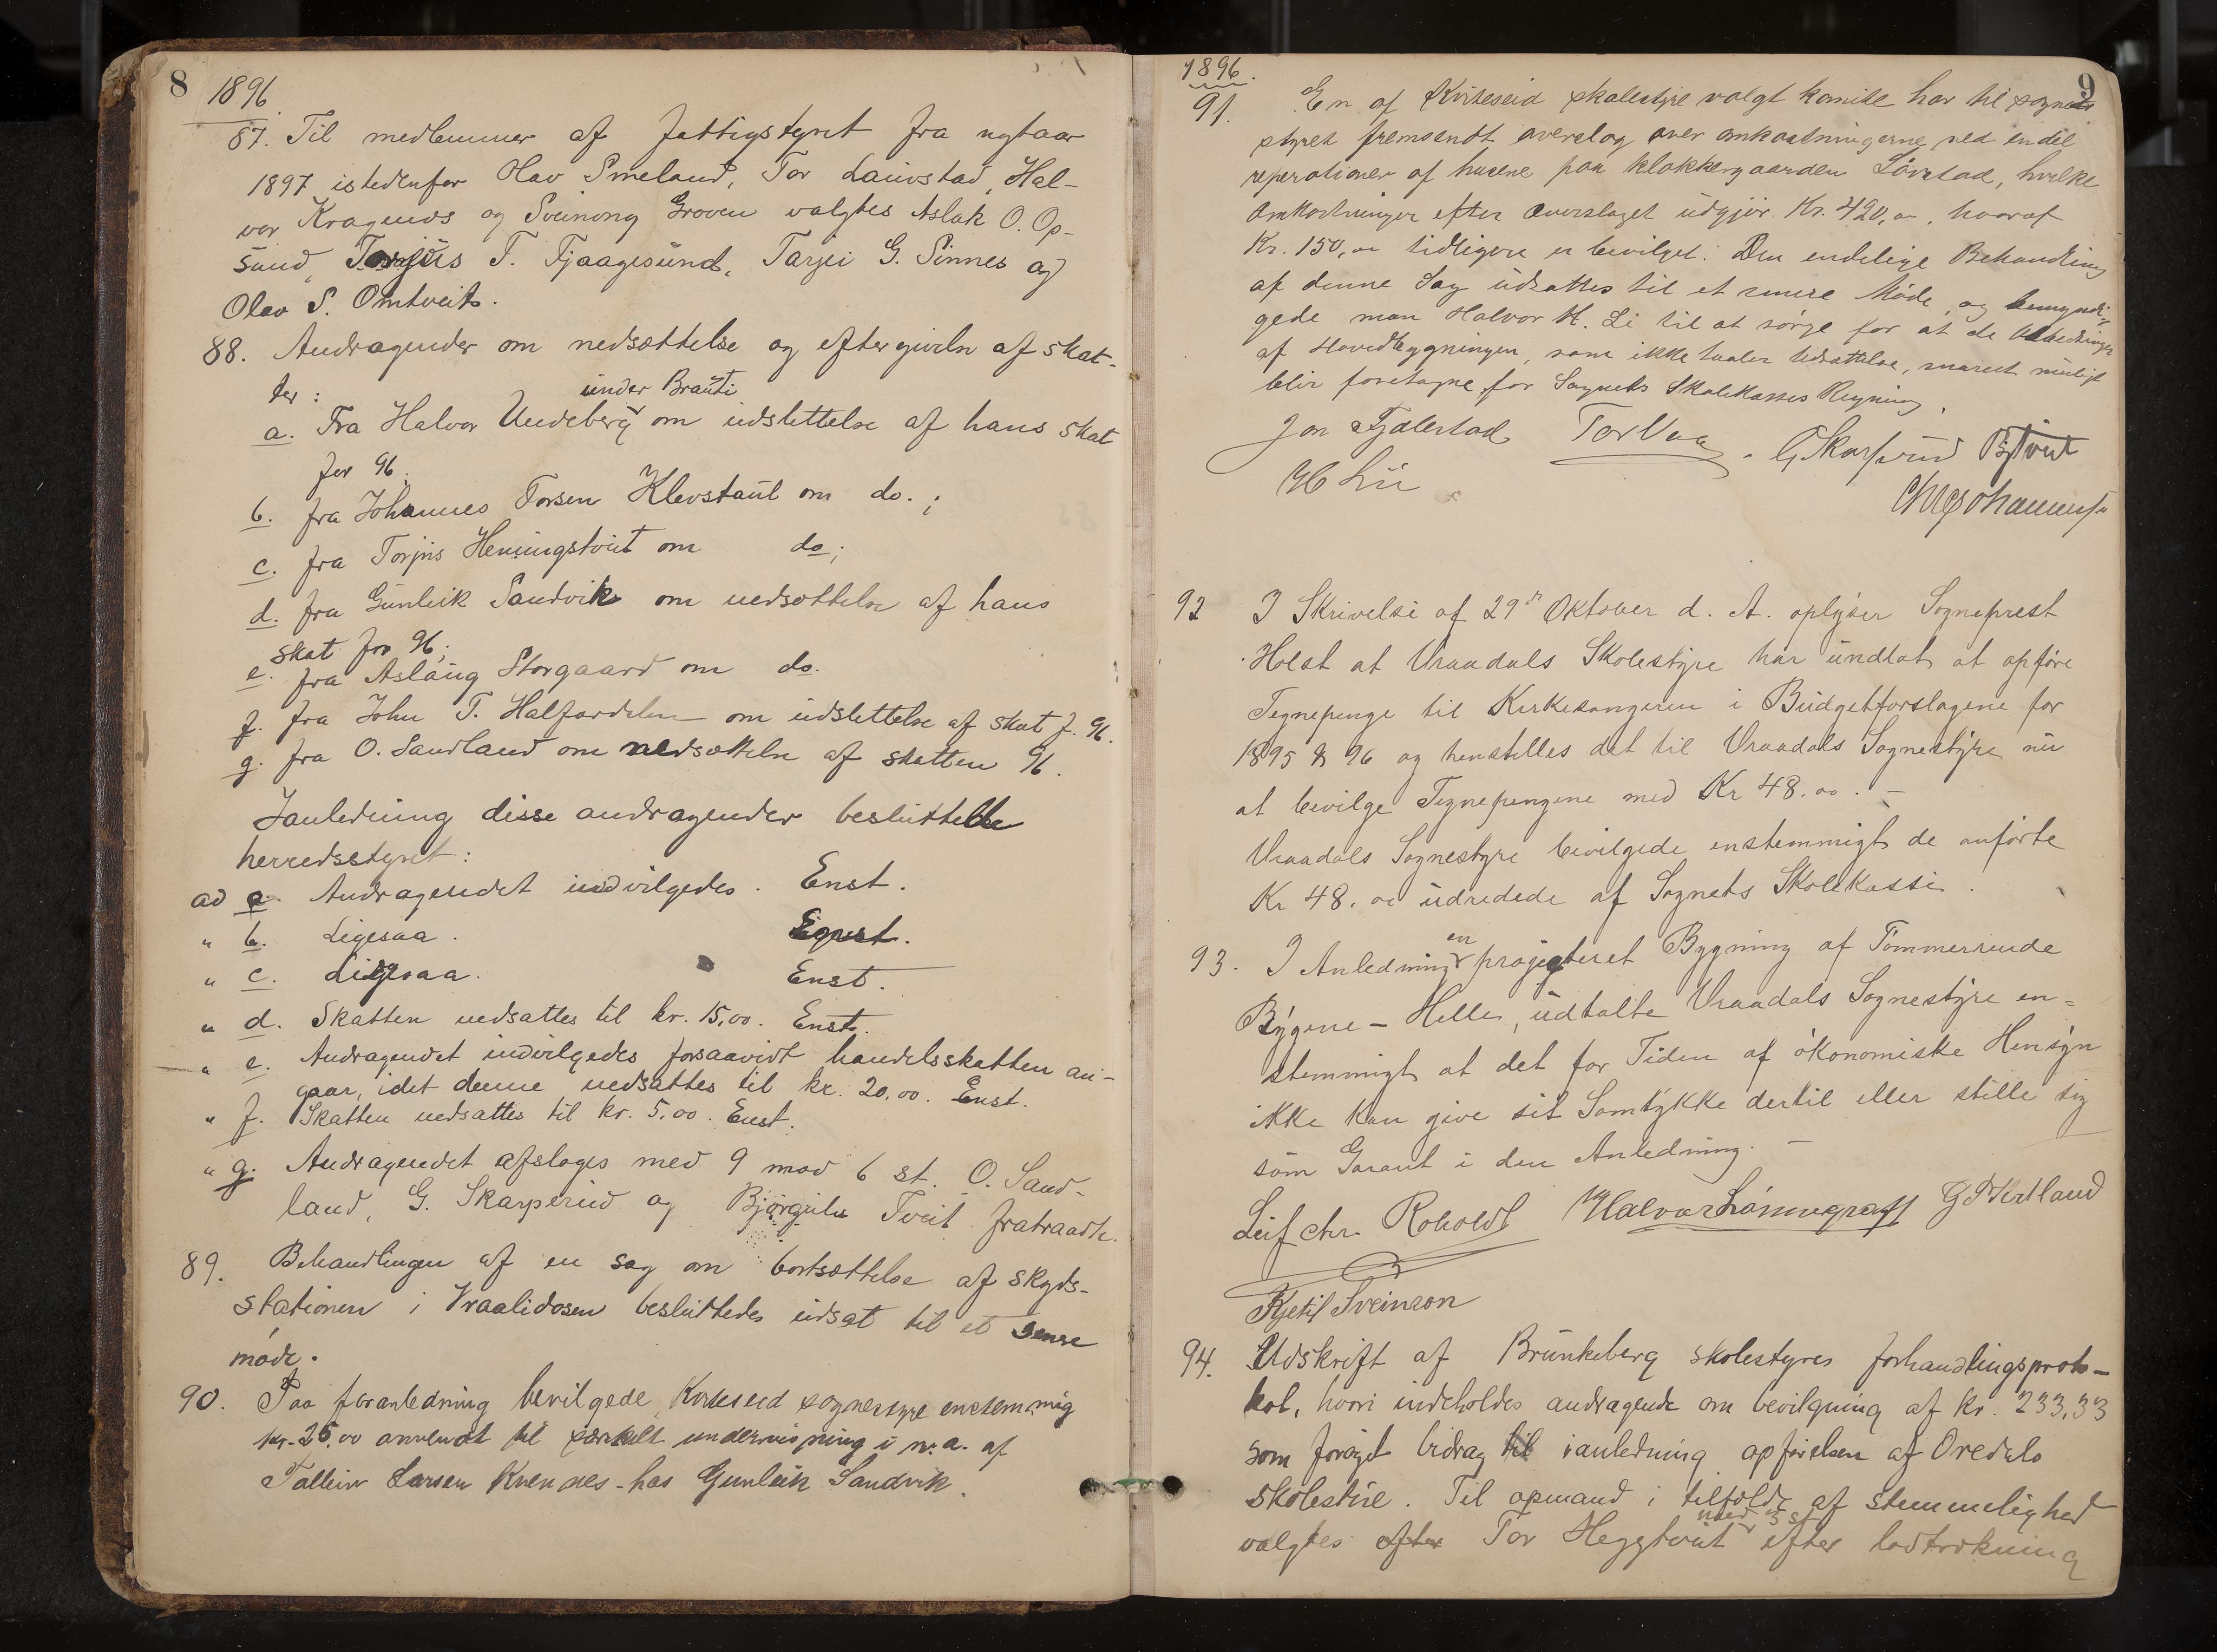 8
1896
87. Til medlemmer af fattigstyret fra nytaar
1897 istedenfor Olav Smeland, Tor Lauvstad, Hal-
vor Kragenes og Sveinung Groven valgtes Aslak O. Op-
sund, Torjus T. Fjaagesund, Tarjei G. Sinnes og
Olav S. Omtveit.
88. Andragender om nedsættelse og eftergivelse af skat-
ter:
under Brauti
a. Fra Halvor Undeberg om udslettelse af hans skat
for 96.
b. fra Johannes Torsen Klevstaul om do.;
c. fra Torjus Heningstveit om do;
d. fra Gunleik Sandvik om nedsættelse af hans
skat for 96;
e. fra Aslaug Storgaard om do.
f. fra John T. Halfardalen om udslettelse af skat f. 96.
g. fra O. Sandland om nedsættelse af skatten 96.
Ianledning disse andragender besluttede
herredsstyret:
ad a. Andragendet indvilgedes. Enst.
" b. Ligesaa. Enst.
" c. Ligesaa. Enst.
" d. Skatten nedsattes til kr. 15,00. Enst.
" e. Andragendet indvilgedes forsaavidt handelsskatten an-
gaar, idet denne nedsattes til kr. 20,00. Enst.
" f. Skatten nedsattes til kr. 5,00. Enst.
" g. Andragendet afsloges med 9 mod 6 st. O. Sand-
land, G. Skarperud og Bjørgulv Tveit fratraadte.
89. Behandlingen af en sag om bortsættelse af skyds-
stationen i Vraaliosen besluttedes udsat til et senere
møde.
90. Paa foranledning bevilgede Kviteseid sognestyre enstemmig
kr. 25,00 anvendt til særskilt undervisning i n. a. af
Talleiv Larsen Kvennes hos Gunleik Sandvik.
9
1896.
91. En af Kviteseid skolestyre valgt komite har til sogne
styret fremsendt overslag over omkostningerne ved endel
reperationer af husene paa klokkergaarden Løvstad, hvilke
Omkostninger efter Overslaget udgjør Kr. 420,00, hvoraf
Kr. 150,00 tidligere er bevilget. Den endelige Behandling
af denne Sag udsattes til et senere Møde, og bemyndi-
gede man Halvor H. Li til at sørge for at de Udbedringer
af Hovedbygningen, som ikke taaler Udsættelse, snarest muligt
blir foretagne for Sognets Skolekasses Regning.
Jon Fjalestad Tor Vaa G Skarperud B Tveit
H Lii
Chr Johannesen
92 I Skrivelse af 29de Oktober d. A. oplyser Sogneprest
Holst at Vraadals Skolestyre har undlat at opføre
Tegnepenge til Kirkesangeren i Budgetforslagene for
1895 & 96 og henstilles det til Vraadals Sognestyre nu
at bevilge Tegnepengene med Kr 48.00. –
Vraadals Sognestyre bevilgede enstemmigt de anførte
Kr 48.00 udredede af Sognets Skolekasse.
en
93. I Anledning projecteret Bygning af Tømmerrende
Bygene – Helle, udtalte Vraadals Sognestyre en=
stemmigt at det for Tiden af økonomiske Hensyn
ikke kan give sit Samtykke dertil eller stille sig
som Garant i den Anledning. –
Leif Chr. Roholdt Halvor Lønnegrav G P Hustland
Kjetil Sveinson
94. Udskrift af Brunkeberg skolestyres forhandlingsproto-
kol, hvori indeholdes andragende om bevilgning af kr. 233,33
som forøget bidrag til ianledning opførelsen af Oredals
skolestue. Til opmand i tilfælde af stemmelighed
med 3 st
valgtes efter Tor Heggtveit efter lodtrækning